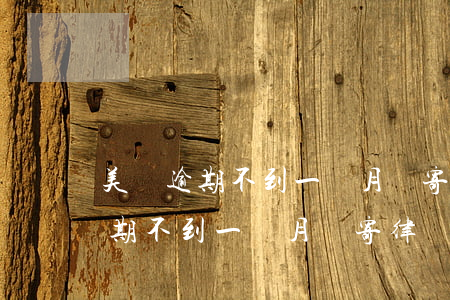 美 逾期不到一 月 寄
期不到一 月 寄律